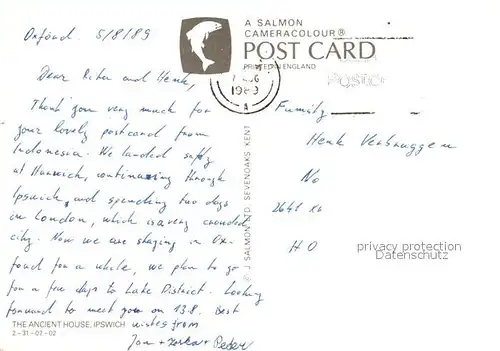 Oxford. 5/8/89
Dear Riha and Henk,
Thank you very much for
your lovely postcard from
Indonesia. We landed safely
at Harwich, continuing through
Ipswich and spending two days
in London, which is a very crowded
city. Now we are staying in Ox-
ford for a while, we plan to go
for a few days to Lake District. Looking
forward to meet you on 13.8. Best
wishes from
Jan + + Peder
THE ANCIENT HOUSE, IPSWICH
2-31-07-02
© J. SALMON LTD. SEVENOAKS KENT
A SALMON
CAMERACOLOUR®
POST CARD
PRINTED IN ENGLAND
1989
A
Henk Verbruggen
No
2641
HO
privacy protection
watermark